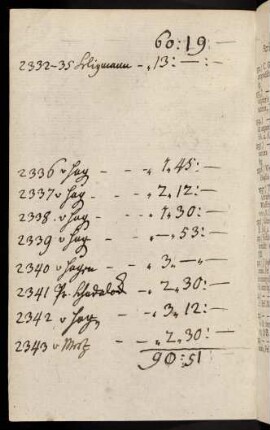 60: 19 —
2332-35 Seligmann - „ 13: —: —
2336 v Hag - - „ 1, 45: —
2337 v Hag. - - „ 2, 12: —
2338. v Hag - - „ 1, 30: —
2339 v Hag - - „ —, 53: —
2340 v Hagen - „ 3, — „
2341 Pr. - „ 2, 30: —
2342 v Hag, - „ 3, 12: —
2343 v Metz - - „ 2, 30: —
90: 51